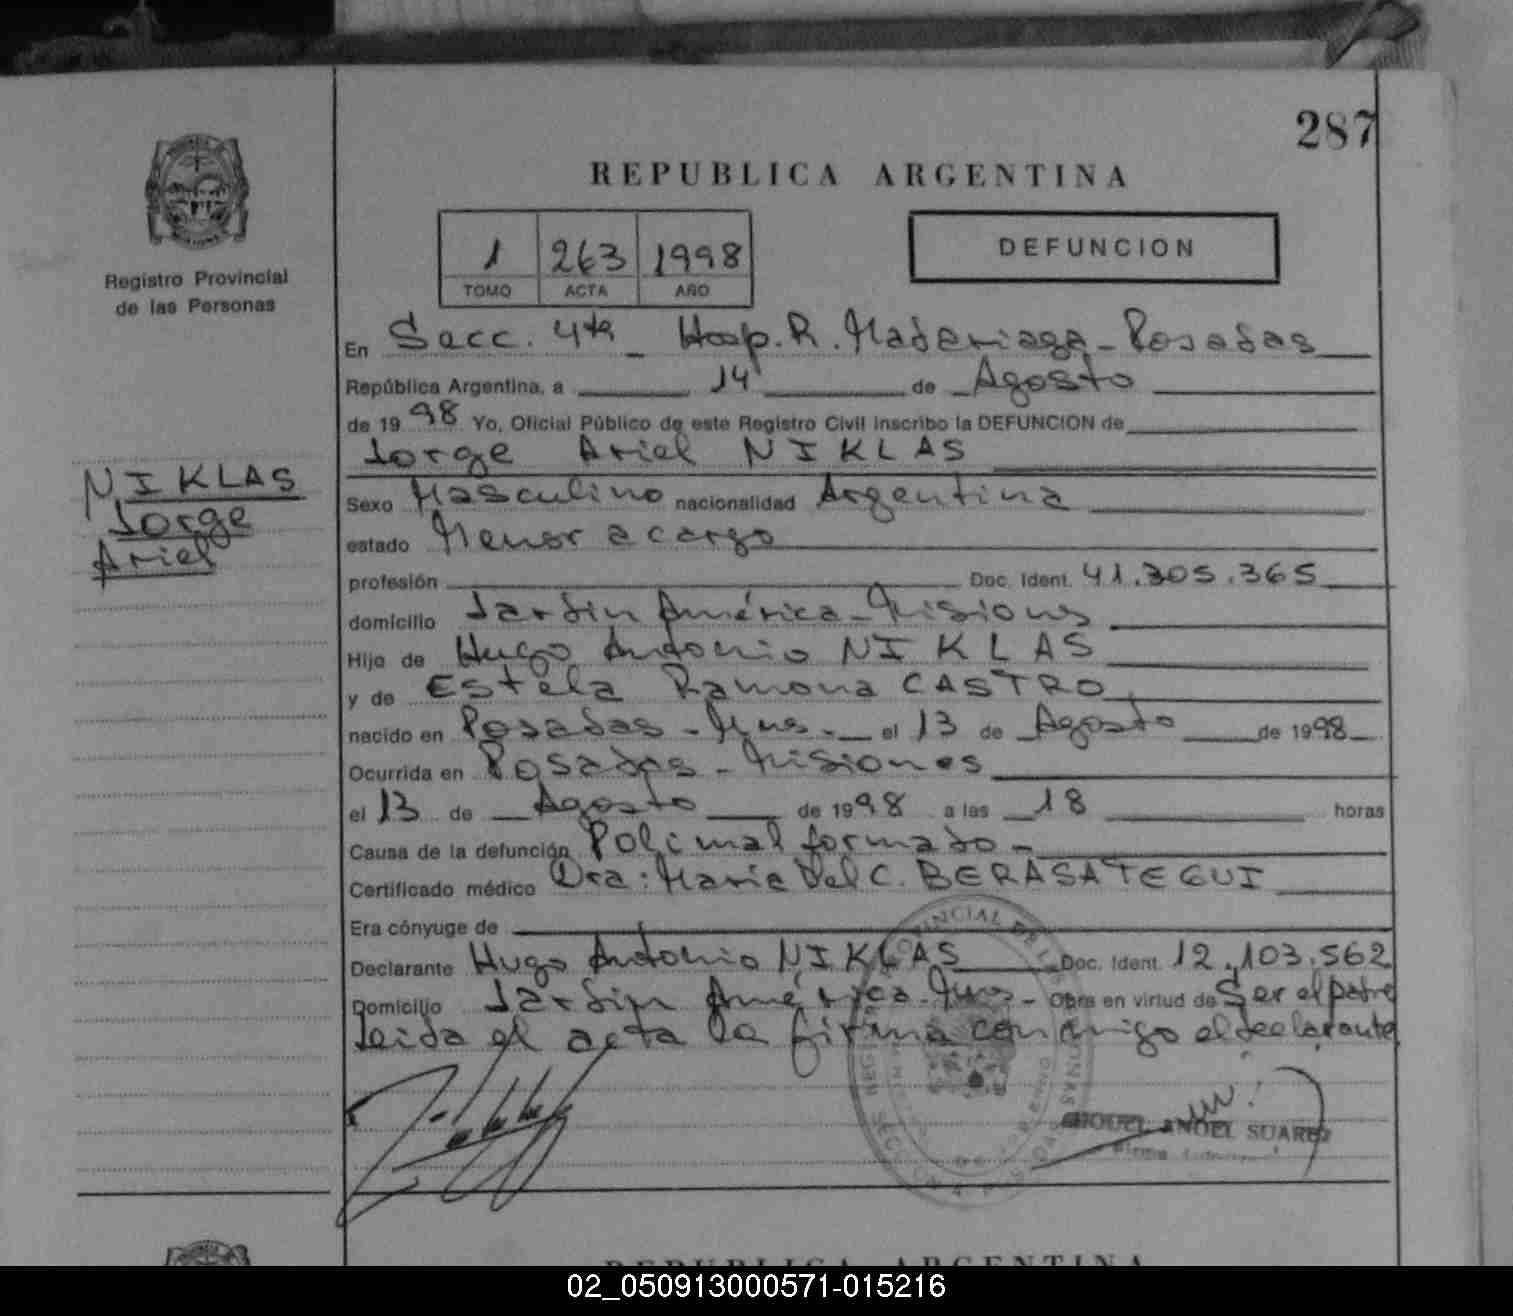 287
REPUBLICA ARGENTINA
Registro Provincial
de las Personas
1 263 1998
TOMO ACTA AÑO
DEFUNCION
En Secc. 4ta Hosp. R. Madariaga - Posadas
República Argentina, a 14 de Agosto
de 1998 Yo, Oficial Público de este Registro Civil inscribo la DEFUNCION de
Jorge Ariel NIKLAS
NIKLAS
Jorge
Ariel
Sexo Masculino nacionalidad Argentina
estado Menor a cargo
profesión Doc. Ident. 41.305.365
domicilio Jardin América - Misiones
Hijo de Hugo Antonio NIKLAS
y de Estela Ramona CASTRO
nacido en Posadas - Mnes. el 13 de Agosto de 1998
Ocurrida en Posadas - Misiones
el 13 de Agosto de 1998 a las 18 horas
Causa de la defunción Polimalformado -
Certificado médico Dra: Maria Del C. BERASATEGUI
Era cónyuge de
Declarante Hugo Antonio NIKLAS Doc. Ident. 12.103.562
Domicilio Jardin América - Mnes - Obra en virtud de Ser el padre
Leida el acta la firma conmigo el declarante
MIGUEL ANGEL SUAREZ
REPUBLICA ARGENTINA
02_050913000571-015216